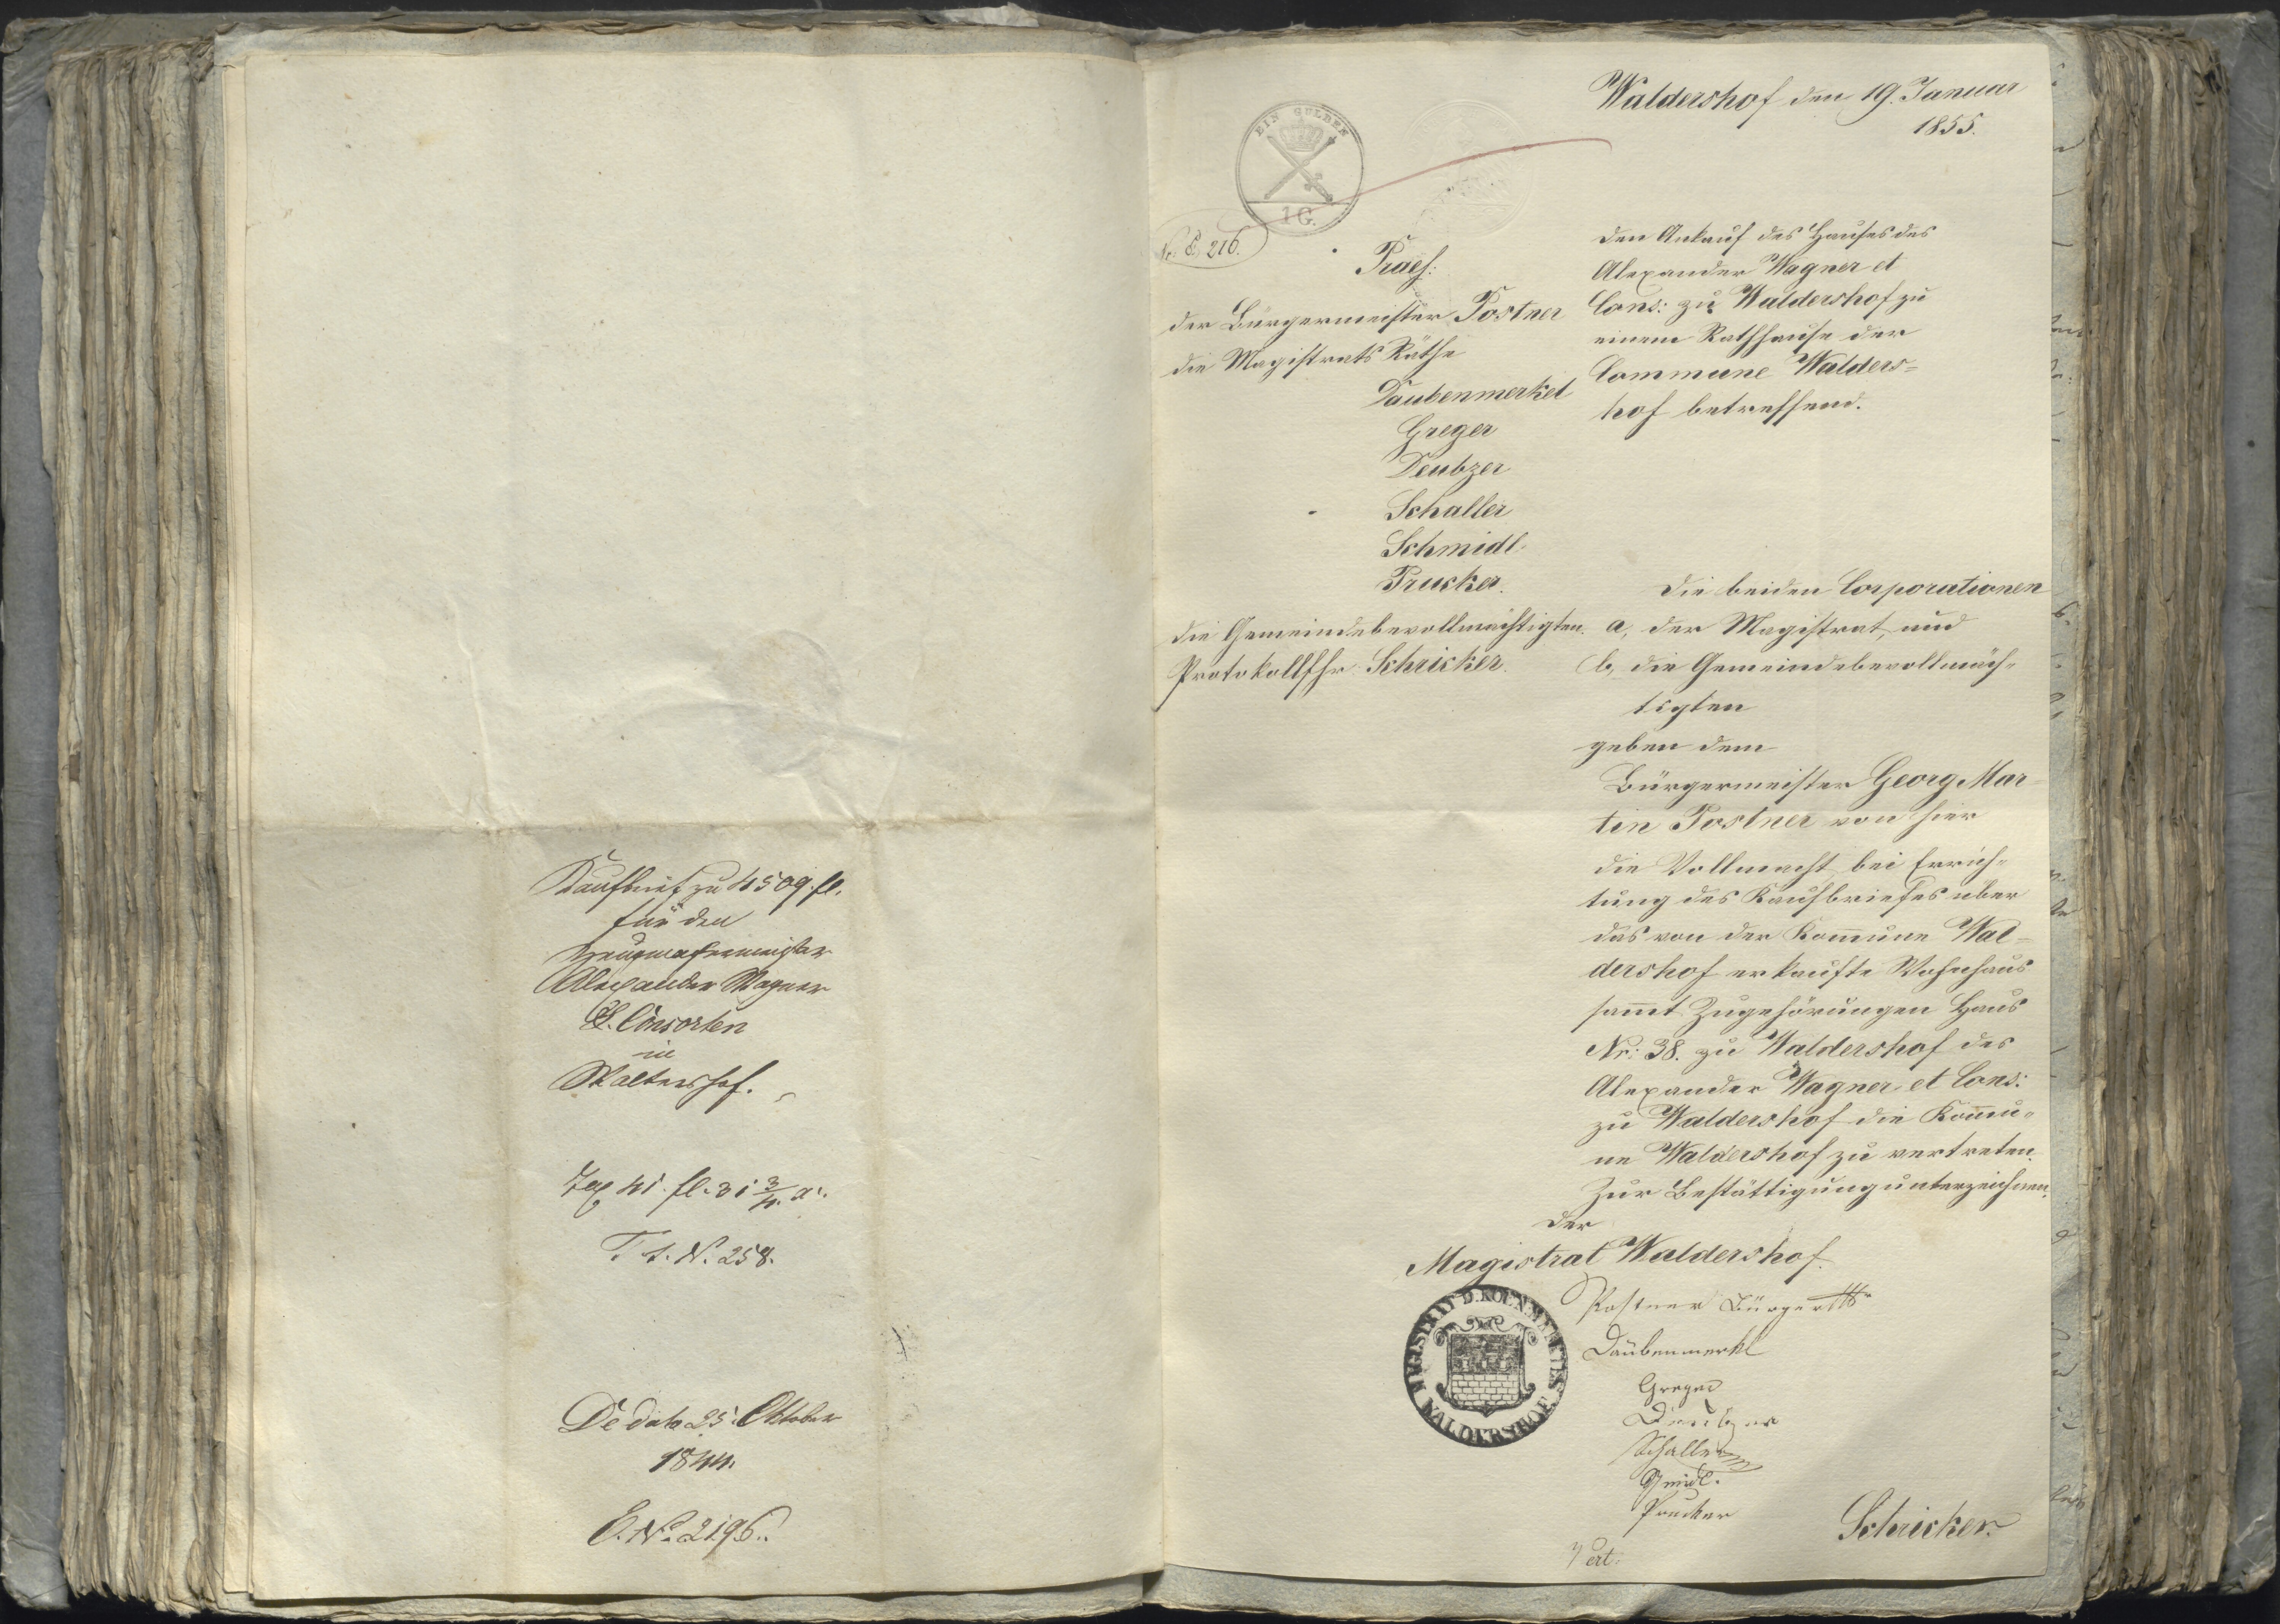 Kaufbrief zu 4509 fl.
für den
Zeugmachermeister
Alexander Wagner
& Consorten
in
Waltershof.
Tax 41 fl. 31 3/4 x.
T. I. N. 258.
De dato 25. Oktober
1844.
E. No 2196.
Waldershof den 19. Januar
1855.
EIN GULDEN
1 G.
Nr. E. 216.
Praes:
der Bürgermeister Postner
die Magistrats Räthe
Daubenmerkel
Greger
Deubzer
Schaller
Schmidl
Prucker.
die Gemeindebevollmächtigten.
Protokollfhr Schricker.
den Ankauf des Hauses des
Alexander Wagner et
Cons: zu Waldershof zu
einem Rathhause der
Commune Walders=
hof betreffend.
Die beiden Corporationen
a, der Magistrat, und
b, die Gemeindebevollmäch=
tigten
geben dem
Bürgermeister Georg Mar=
tin Postner von hier
die Vollmacht, bei Errich=
tung des Kaufbriefes uber
das von der Kom̄une Wal=
dershof erkaufte Wohnhaus
sam̄t Zugehörungen Haus
Nr: 38. zu Waldershof des
Alexander Wagner et Cons:
zu Waldershof die Kom̄u=
ne Waldershof zu vertreten.
Zur Bestättigung unterzeichnen,
Der
Magistrat Waldershof.
Postner Bürgerm
Daübenmerkl
Greger
Deubzer
Schaller
Schmidl.
Prucker
Schricker.
Vert.
MAGISTRAT D. KOEN. MARKTES
WALDERSHOF